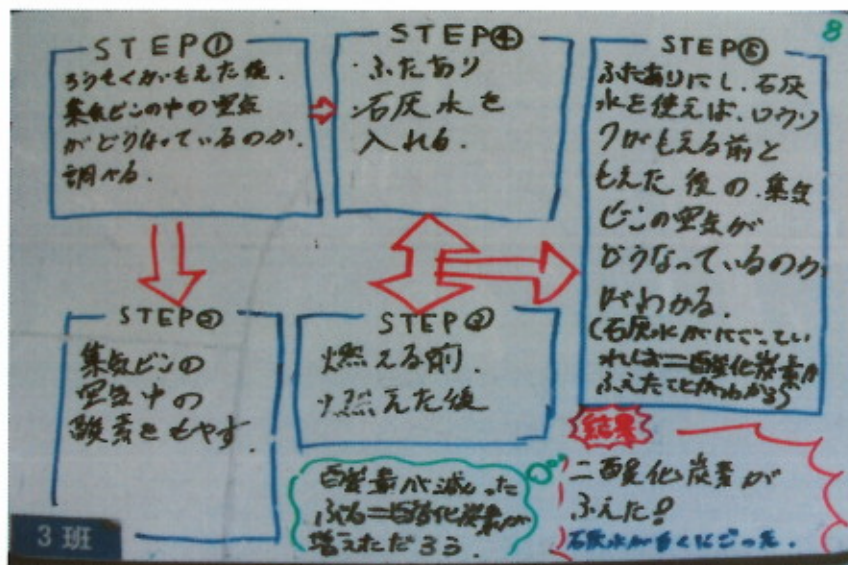 8
STEP①
ろうそくがもえた後、
集気ビンの中の空気
がどうなっているのか、
調べる.
STEP④
・ふたあり
・石灰水を
入れる.
STEP⑤
ふたありにし、石灰
水を使えば、ロウソ
クがもえる前と
もえた後の、集気
ビンの空気が
どうなっているのか
がわかる.
(石灰水がにごってい
れば二酸化炭素が
ふえたことがわかる)
STEP②
集気ビンの
空気中の
酸素をもやす.
STEP③
燃える前.
燃えた後
酸素が減った
ぶん二酸化炭素が
増えただろう.
結果
二酸化炭素が
ふえた!
石灰水が白くにごった.
3班